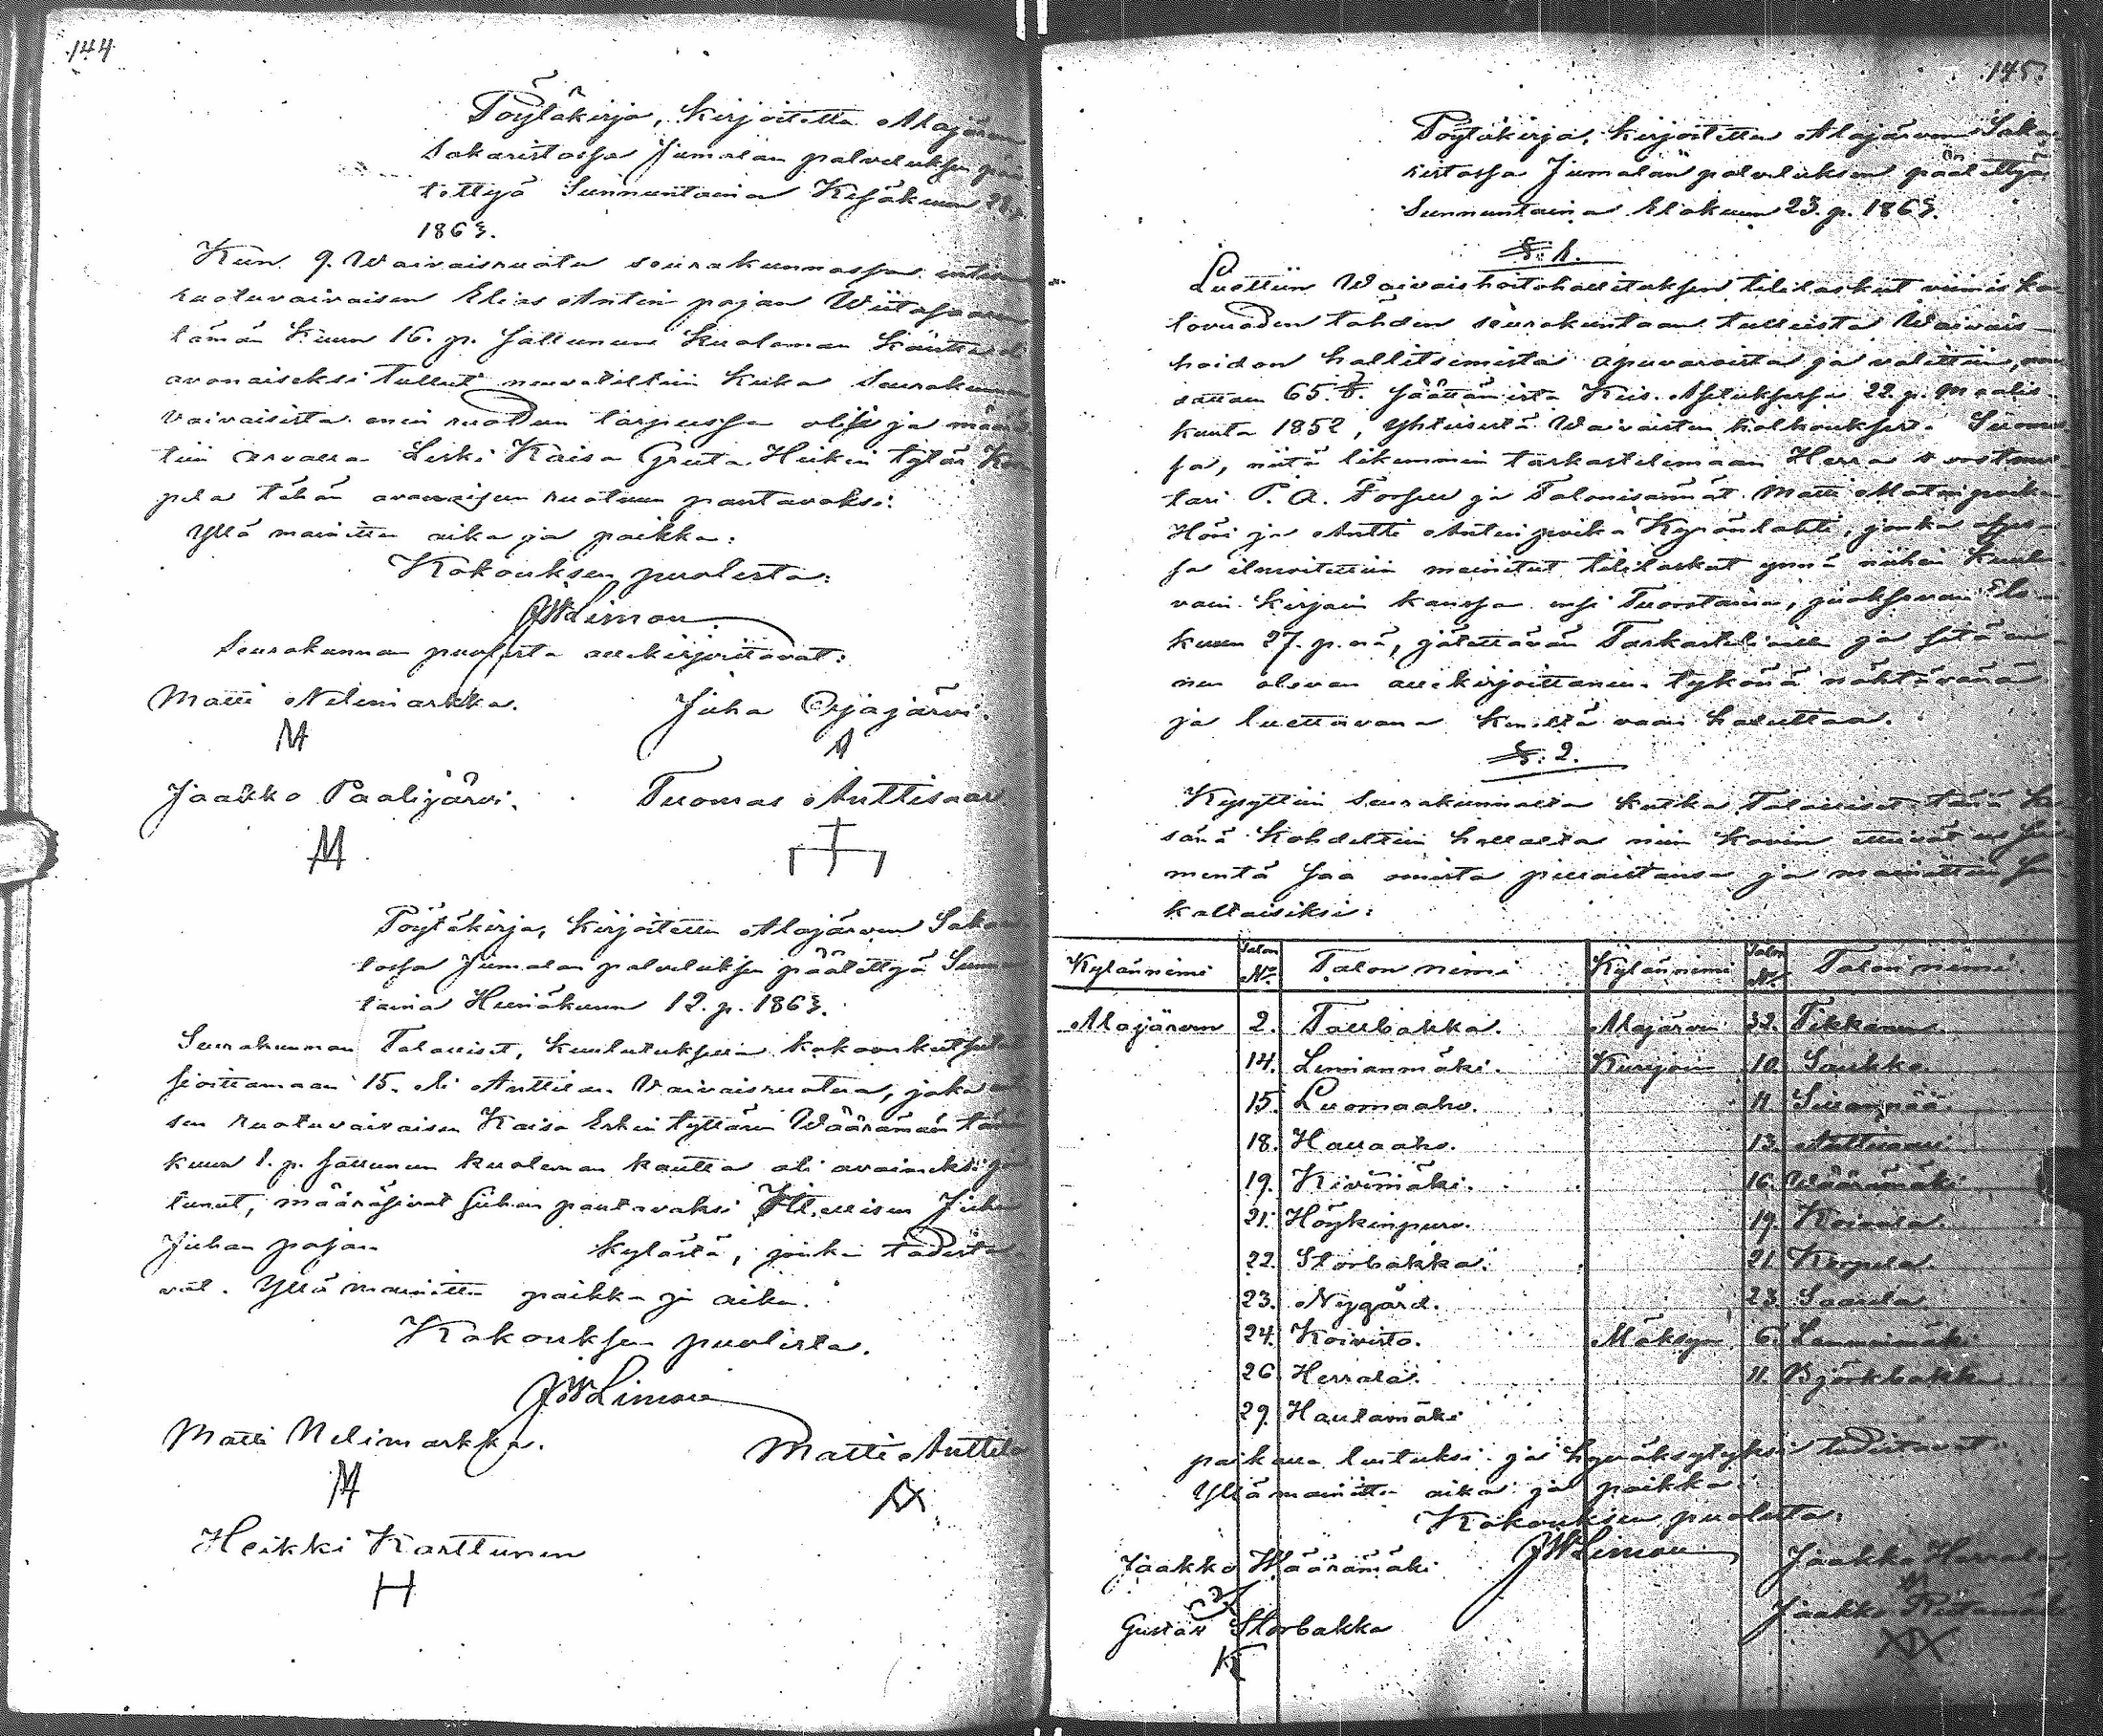 144
Pöytäkirja, Kirjoitettu Alajärven
Sakaristossa Jumalan palveluksen pää
tettyä Sunnuntaina Kesäkuun 28 p.
1863.
Kun 9. Waivaisruotu seurakunnassa entisen
ruotuvaivaisen Elias Antin pojan Wiitasaaren
tämän Kuun 16. p. sattunun Kuoleman kautta oli
avonaiseksi tullut neuvoteltiin kuka Seurakunnan
Vaivaisista enin ruodun tarpeessa olisi ja määrät
tiin arvalla Leski Kaisa Greeta Heikin tytär Kor
pela tähän avonaiseen ruotuun pantavaksi.
Yllä mainittu aika ja paikka:
Kokouksen puolesta:
JWLimon
Seurakunnan puolesta allekirjoittavat:
Matti Nelimarkka. Juha Ojajärvi.
Jaakko Paalijärvi. Tuomas Anttisaari
Pöytäkirja, Kirjoitettu Alajärven Saka
tossa Jumalan palveluksen päätettyä Sunnun
taina Heinäkuun 12. p. 1863.
Seurakunnan Talolliset, Kuulutuksella kokoonkutsutut
sioittamaan 15. eli Anttilan Vaivaisruotua, joka
sen ruotuvaivaisen Kaisa Erkin tyttären Wääränmäen tämän
kuun 1. p. sattunun kuoleman kautta oli avoimeksi
tunut, määräsivät siihen pantavaksi Itsellisen Juha
Juhan pojan kylästä, jonka todista
vat. Yllä mainittu paikka ja aika.
Kokouksen puolesta.
JWLimon
Matti Nelimarkka. Matti Anttila
Heikki Karttunen
H
145.
Pöytäkirja, Kirjoitettu Alajärven Saka
ristossa Jumalan palveluksen päätettyä
Sunnuntaina Elokuun 23. p. 1863.
§: 1.
Luettiin Waivaishoitohallituksen tililaskut viimis ka
tovuoden tähden seurakuntaan tulleista Waivais-
hoidon hallitsemista apuvaroista ja valittiin,
sattuen 65. §. säättämistä Keis. Asetuksessa 22. p. Maalis
kuuta 1852, yhteisestä Waivaisten holhouksesta Suomes
sa, niitä likemmin tarkastelemaan Herra
tari P. A. Forssell ja Talonisännät Matti Matin poika
Höri ja Antti Antin poika Kyröndahti, jonka ohes-
sa ilmoitettiin mainitut tililaskut ynnä niihin kuulu
vain Kirjain kanssa ensi Tuorstaina, juoksevan Elo
kuun 27. p:nä, jätettävän Tarkastelioille ja sitä en
nen olevan allekirjoittanen tykönä nähtävänä
ja luettavana keneltä vaan haluttaa.
§: 2.
Kysyttiin Seurakunnalta kutka Talolliset tänä ke
sänä kohdeltiin hallalta niin kovin etteivät he sie
mentä saa omista pelloistansa ja mainittiin sen
kaltaisiksi:
Kylän nimi Talon No. Talon nimi Kylän nimi Talon No. Talon nimi
Alajärven 2. Tallbakka. Alajärvi 32. Tikkanen
14. Linnanmäki. Kurejoen 10. Saukko.
15. Luomaaho. 11. Sillanpää.
18. Hallaaho. 13. Anttisaari
19. Kivimäki. 16. Wääränmäki
21. Höykinpuro. 19. Koivula.
22. Storbakka. 21. Korpela.
23. Nygård. 23. Saarela
24. Koivisto. Mäksyn 6. Lamminmäki
26. Herrala. 11. Björkbakka
29. Hautamäki
paikalla luetuksi ja hyväksytyksi todistavat.
Yllä mainittu aika ja paikka.
Kokouksen puolesta:
JWLimon
Jaakko Wääränmäki Jaakko
Gustav Storbakka Jaakko